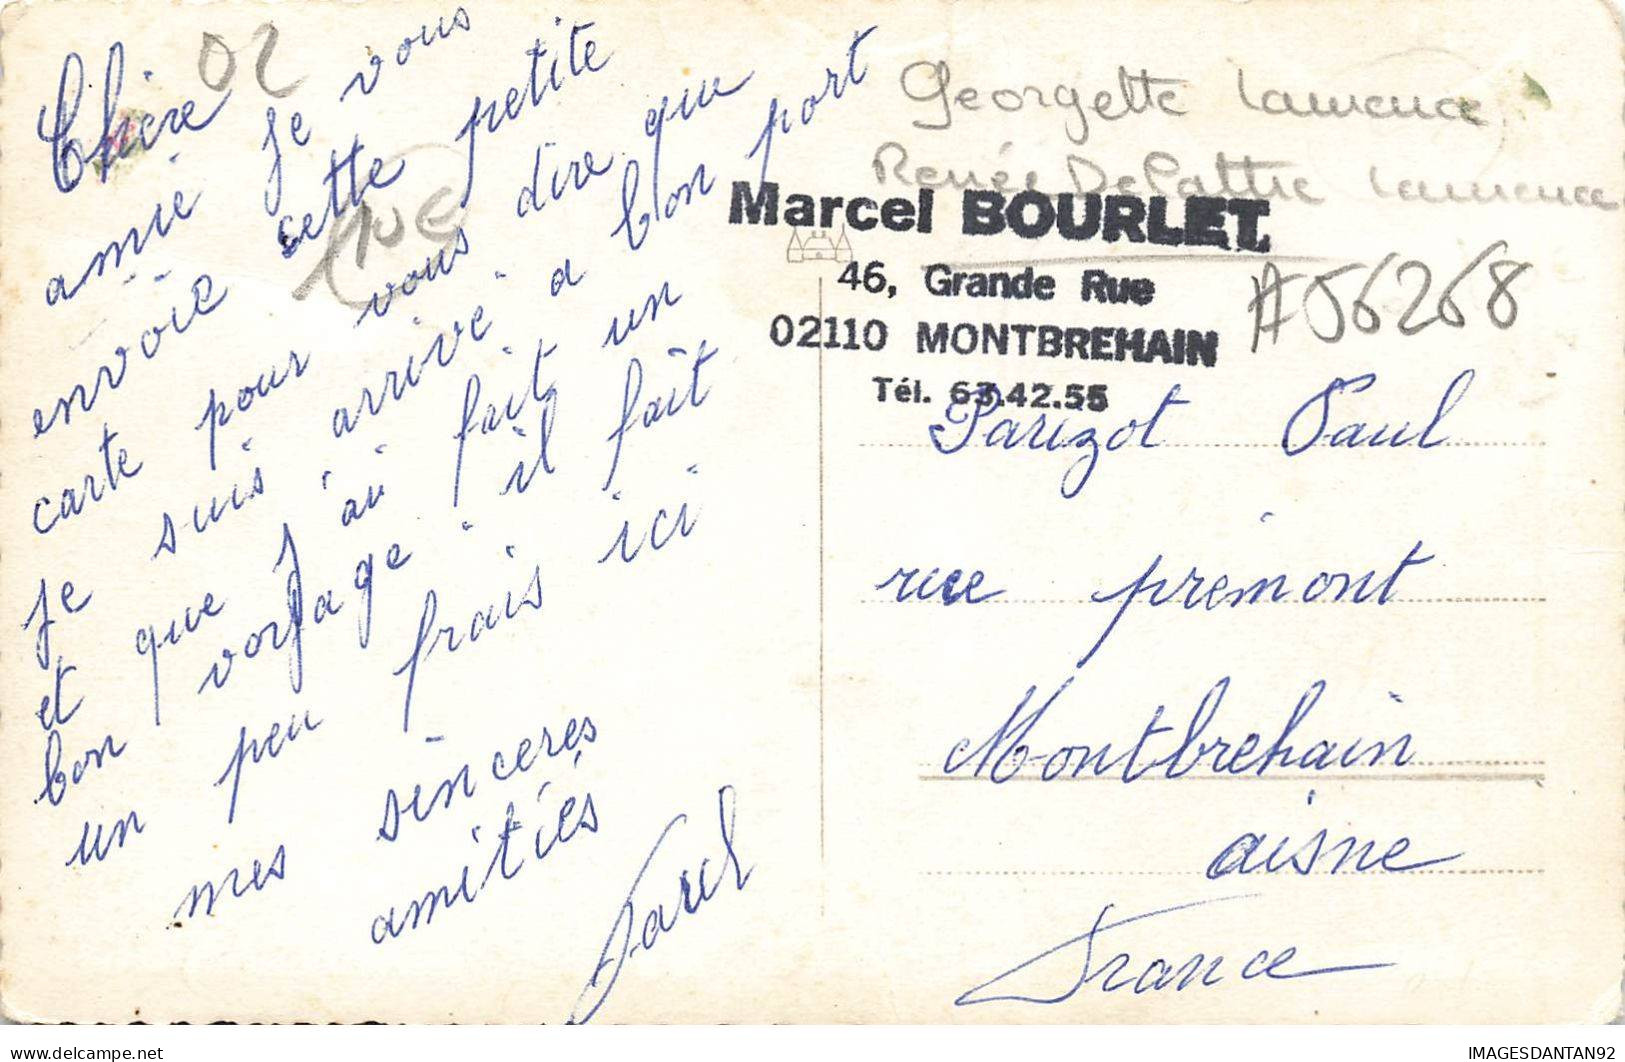 02
Chère
amie je vous
envoie cette petite
carte pour vous dire que
je suis arrivé a bon port
et que j'ai fait un
bon voyage il fait
un peu frais ici
mes sincères
amitiés
Georgette
Renée
Marcel BOURLET
46, Grande Rue
02110 MONTBREHAIN
Tél. 63.42.55
#56268
Parizot Paul
rue prémont
Montbrehain
aisne
France
delcampe.net
IMAGESDANTAN92